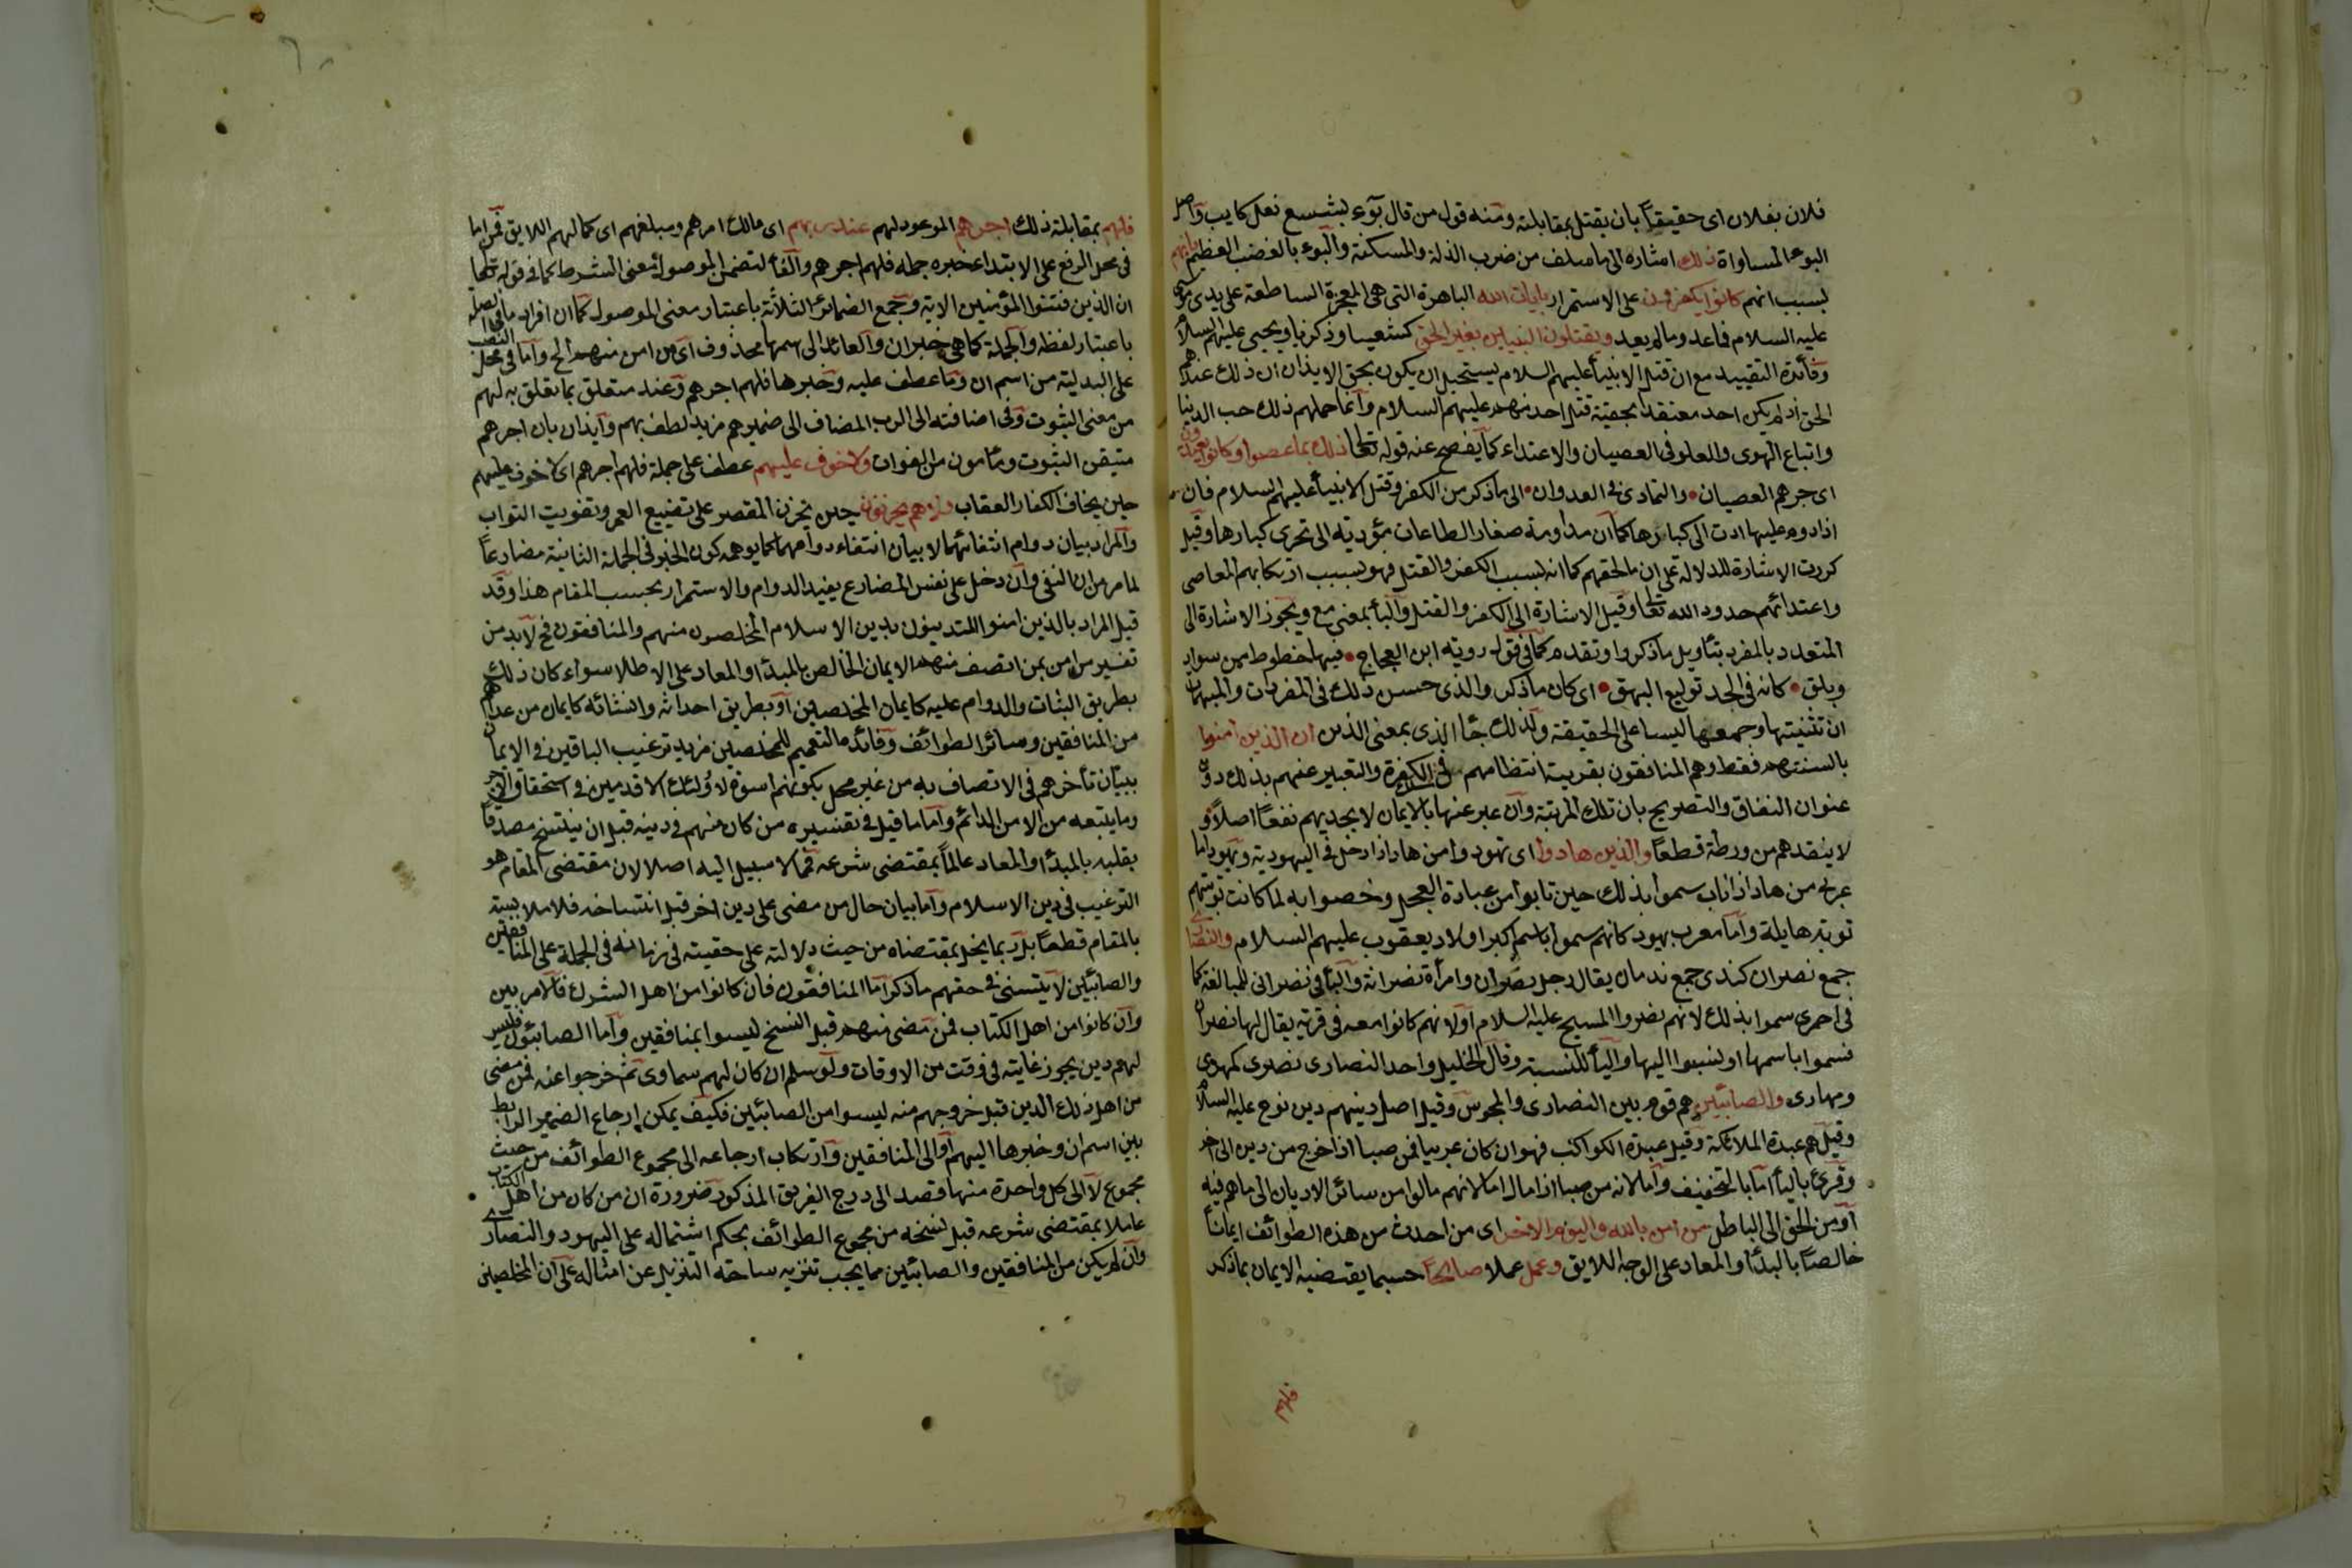 فلان بفلان اى حقيقاً بان يقتل بمقابلته ومنه قول من قال بؤء بشسع نعل كليب واصل
البوء المساواة ذلك اشارة الى ما سلف من ضرب الذلة والمسكنة والبوء بالغضب العظيم بانهم
بسبب انهم كانوا يكفرون على الاستمرار بايات الله الباهرة التى هى المعجزة الساطعة على يدى موسى
عليه السلام فما عد وما لم يعد ويقتلون النبيين بغير الحق كشعيا وزكريا ويحيى عليهم السلام
وفائدة التقييد مع ان قتل الانبيأ عليهم السلام يستحيل ان يكون بحق الايذان ان ذلك عندهم
الحق اذ لم يكن احد معتقدا بحقية قتل احد منهم عليهم السلام وانما حملهم ذلك حب الدنيا
واتباع الهوى والغلو فى العصيان والاعتداء كما يفصح عنه قوله تعالى ذلك بما عصوا وكانوا يعتدون
اى جرهم العصيان والتمادى فى العدوان الى ما ذكر من الكفر وقتل الانبيأ عليهم السلام فان
اذا دوم عليها ادت الى كبارها كما ان مداومة صغار الطاعات مؤدية الى تحرى كبارها وقيل
كررت الاشارة للدلالة على ان ما لحقهم كما انه بسبب الكفر والقتل فهو بسبب ارتكابهم المعاصى
واعتدائهم حدود الله تعالى وقيل الاشارة الى الكفر والقتل والبأ بمعنى مع ويجوز الاشارة الى
المتعدد بالمفرد بتأويل ما ذكر او تقدم كما فى قول رؤبة ابن العجاج فيها خطوط من سواد
وبلق كانه فى الجلد توليع البهق اى كان ما ذكر والذى حسن ذلك فى المضمرات والمبهمات
ان تثنيتها وجمعها ليسا على الحقيقة ولذلك جأ الذى بمعنى الذين ان الذين امنوا
بالسنتهم فقط وهم المنافقون بقرينة انتظامهم فى سلك الكفرة والتعبير عنهم بذلك دون
عنوان النفاق والتصريح بان تلك المرتبة وان عبر عنها بالايمان لا يجديهم نفعاً اصلاً و
لا ينقذهم من ورطة قطعاً والذين هادوا اى تهودوا من هاد اذا دخل فى اليهودية ويهود اما
عربى من هاد اذا تاب سموا بذلك حين تابوا من عبادة العجل وخصوا به لما كانت توبتهم
توبة هايلة واما معرب يهود كانهم سموا باسم اكبر اولاد يعقوب عليهم السلام والنصارى
جمع نصران كندى جمع ندمان يقال رجل نصران وامرأة نصرانة واليأ فى نصرانى للمبالغة كما
فى احمرى سموا بذلك لانهم نصروا المسيح عليه السلام او لانهم كانوا معه فى قرية يقال لها نصران
فسموا باسمها او نسبوا اليها واليأ للنسبة وقال الخليل واحد النصارى نصرى كمهرى
ومهارى والصابئين هم قوم بين النصارى والمجوس وقيل اصل دينهم دين نوح عليه السلام
وقيل هم عبدة الملائكة وقيل عبدة الكواكب فهو ان كان عربيا فمن صبا اذا خرج من دين الى اخر
وقرئ باليأ اما بالتخفيف واما لانه من صبا اذا مال لما كلانهم مالوا من سائر الاديان الى ما هم فيه
او من الحق الى الباطل من امن بالله واليوم الاخر اى من احدث من هذه الطوائف ايماناً
خالصاً بالمبدأ والمعاد على الوجه اللايق وعمل عملا صالحاً حسبما يقتضيه الايمان بما ذكر
فلهم
فلهم بمقابلة ذلك اجرهم الموعود لهم عند ربهم اى مالك امرهم ومبلغهم اى كمالهم اللايق فمن اما
فى محل الرفع على الابتداء خبره جملة فلهم اجرهم والفأ لتضمن الموصول معنى الشرط كما فى قوله تعالى
ان الذين فتنوا المؤمنين الاية وجمع الضمائر الثلاثة باعتبار معنى الموصول كما ان افراد ما فى الصلة
باعتبار لفظه والجملة كما هى خبر ان والعائد الى اسمها محذوف اى من امن منهم الخ واما فى محل النصب
على البدلية من اسم ان وما عطف عليه وخبرها فلهم اجرهم وعند متعلق بما تعلق به لهم
من معنى الثبوت وفى اضافته الى الرب المضاف الى ضميرهم مزيد لطف بهم وايذان بان اجرهم
متيقن الثبوت ومأمون من الفوات ولا خوف عليهم عطف على جملة فلهم اجرهم اى لا خوف عليهم
حين يخاف الكفار العقاب ولا هم يحزنون حين يحزن المقصر على تضييع العمر وتفويت الثواب
والمراد بيان دوام انتفائهما لا بيان انتفاء دوامهما كما يوهمه كون الخبر فى الجملة الثانية مضارعاً
لما مر من ان النفى وان دخل على نفس المضارع يفيد الدوام والاستمرار بحسب المقام هذا وقد
قيل المراد بالذين امنوا المتدينون بدين الاسلام المخلصون منهم والمنافقون فح لابد من
تفسير من امن بمن اتصف منهم بالايمان الخالص بالمبدأ والمعاد على الاطلاق سواء كان ذلك
بطريق الثبات والدوام عليه كايمان المخلصين او بطريق احداثه وانشائه كايمان من عداهم
من المنافقين وسائر الطوائف وفائدة التعميم للمخلصين مزيد ترغيب الباقين فى الايمان
ببيان تأخرهم فى الاتصاف به من غير مخل بكونهم اسوة لاولئك الاقدمين فى استحقاق الاجر
وما يتبعه من الامن الدائم واما ما قيل فى تفسيره من كان منهم فى دينه قبل ان ينسخ مصدقاً
بقلبه بالمبدأ والمعاد عالماً بمقتضى شرعه فمما لا سبيل اليه اصلا لان مقتضى المقام هو
الترغيب فى دين الاسلام واما بيان حال من مضى على دين اخر قبل انتساخه فلا ملابسة
بالمقام قطعاً بل ربما يخل بمقتضاه من حيث دلالته على حقيته فى زمانه فى الجملة على المنافقين
والصابئين لا يتسنى فى حقهم ما ذكر اما المنافقون فان كانوا من اهل الشرك فالامر بين
وان كانوا من اهل الكتاب فمن مضى منهم قبل النسخ ليسوا بمنافقين واما الصابئون فليس
لهم دين يجوز رعايته فى وقت من الاوقات ولو سلم ان كان لهم سماوى ثم خرجوا عنه فمن مضى
من اهل ذلك الدين قبل خروجهم منه ليسوا من الصابئين فكيف يمكن ارجاع الضمير الرابط
بين اسم ان وخبرها اليهم او الى المنافقين وارتكاب ارجاعه الى مجموع الطوائف من حيث
مجموع لا الى كل واحدة منها قصد الى درج الفريق المذكور ضرورة ان من كان من اهل الكتاب
عاملا بمقتضى شرعه قبل نسخه من مجموع الطوائف بحكم اشتماله على اليهود والنصارى
وان لم يكن من المنافقين والصابئين مما يجب تنزيه ساحة التنزيل عن امثاله على ان المخلصين